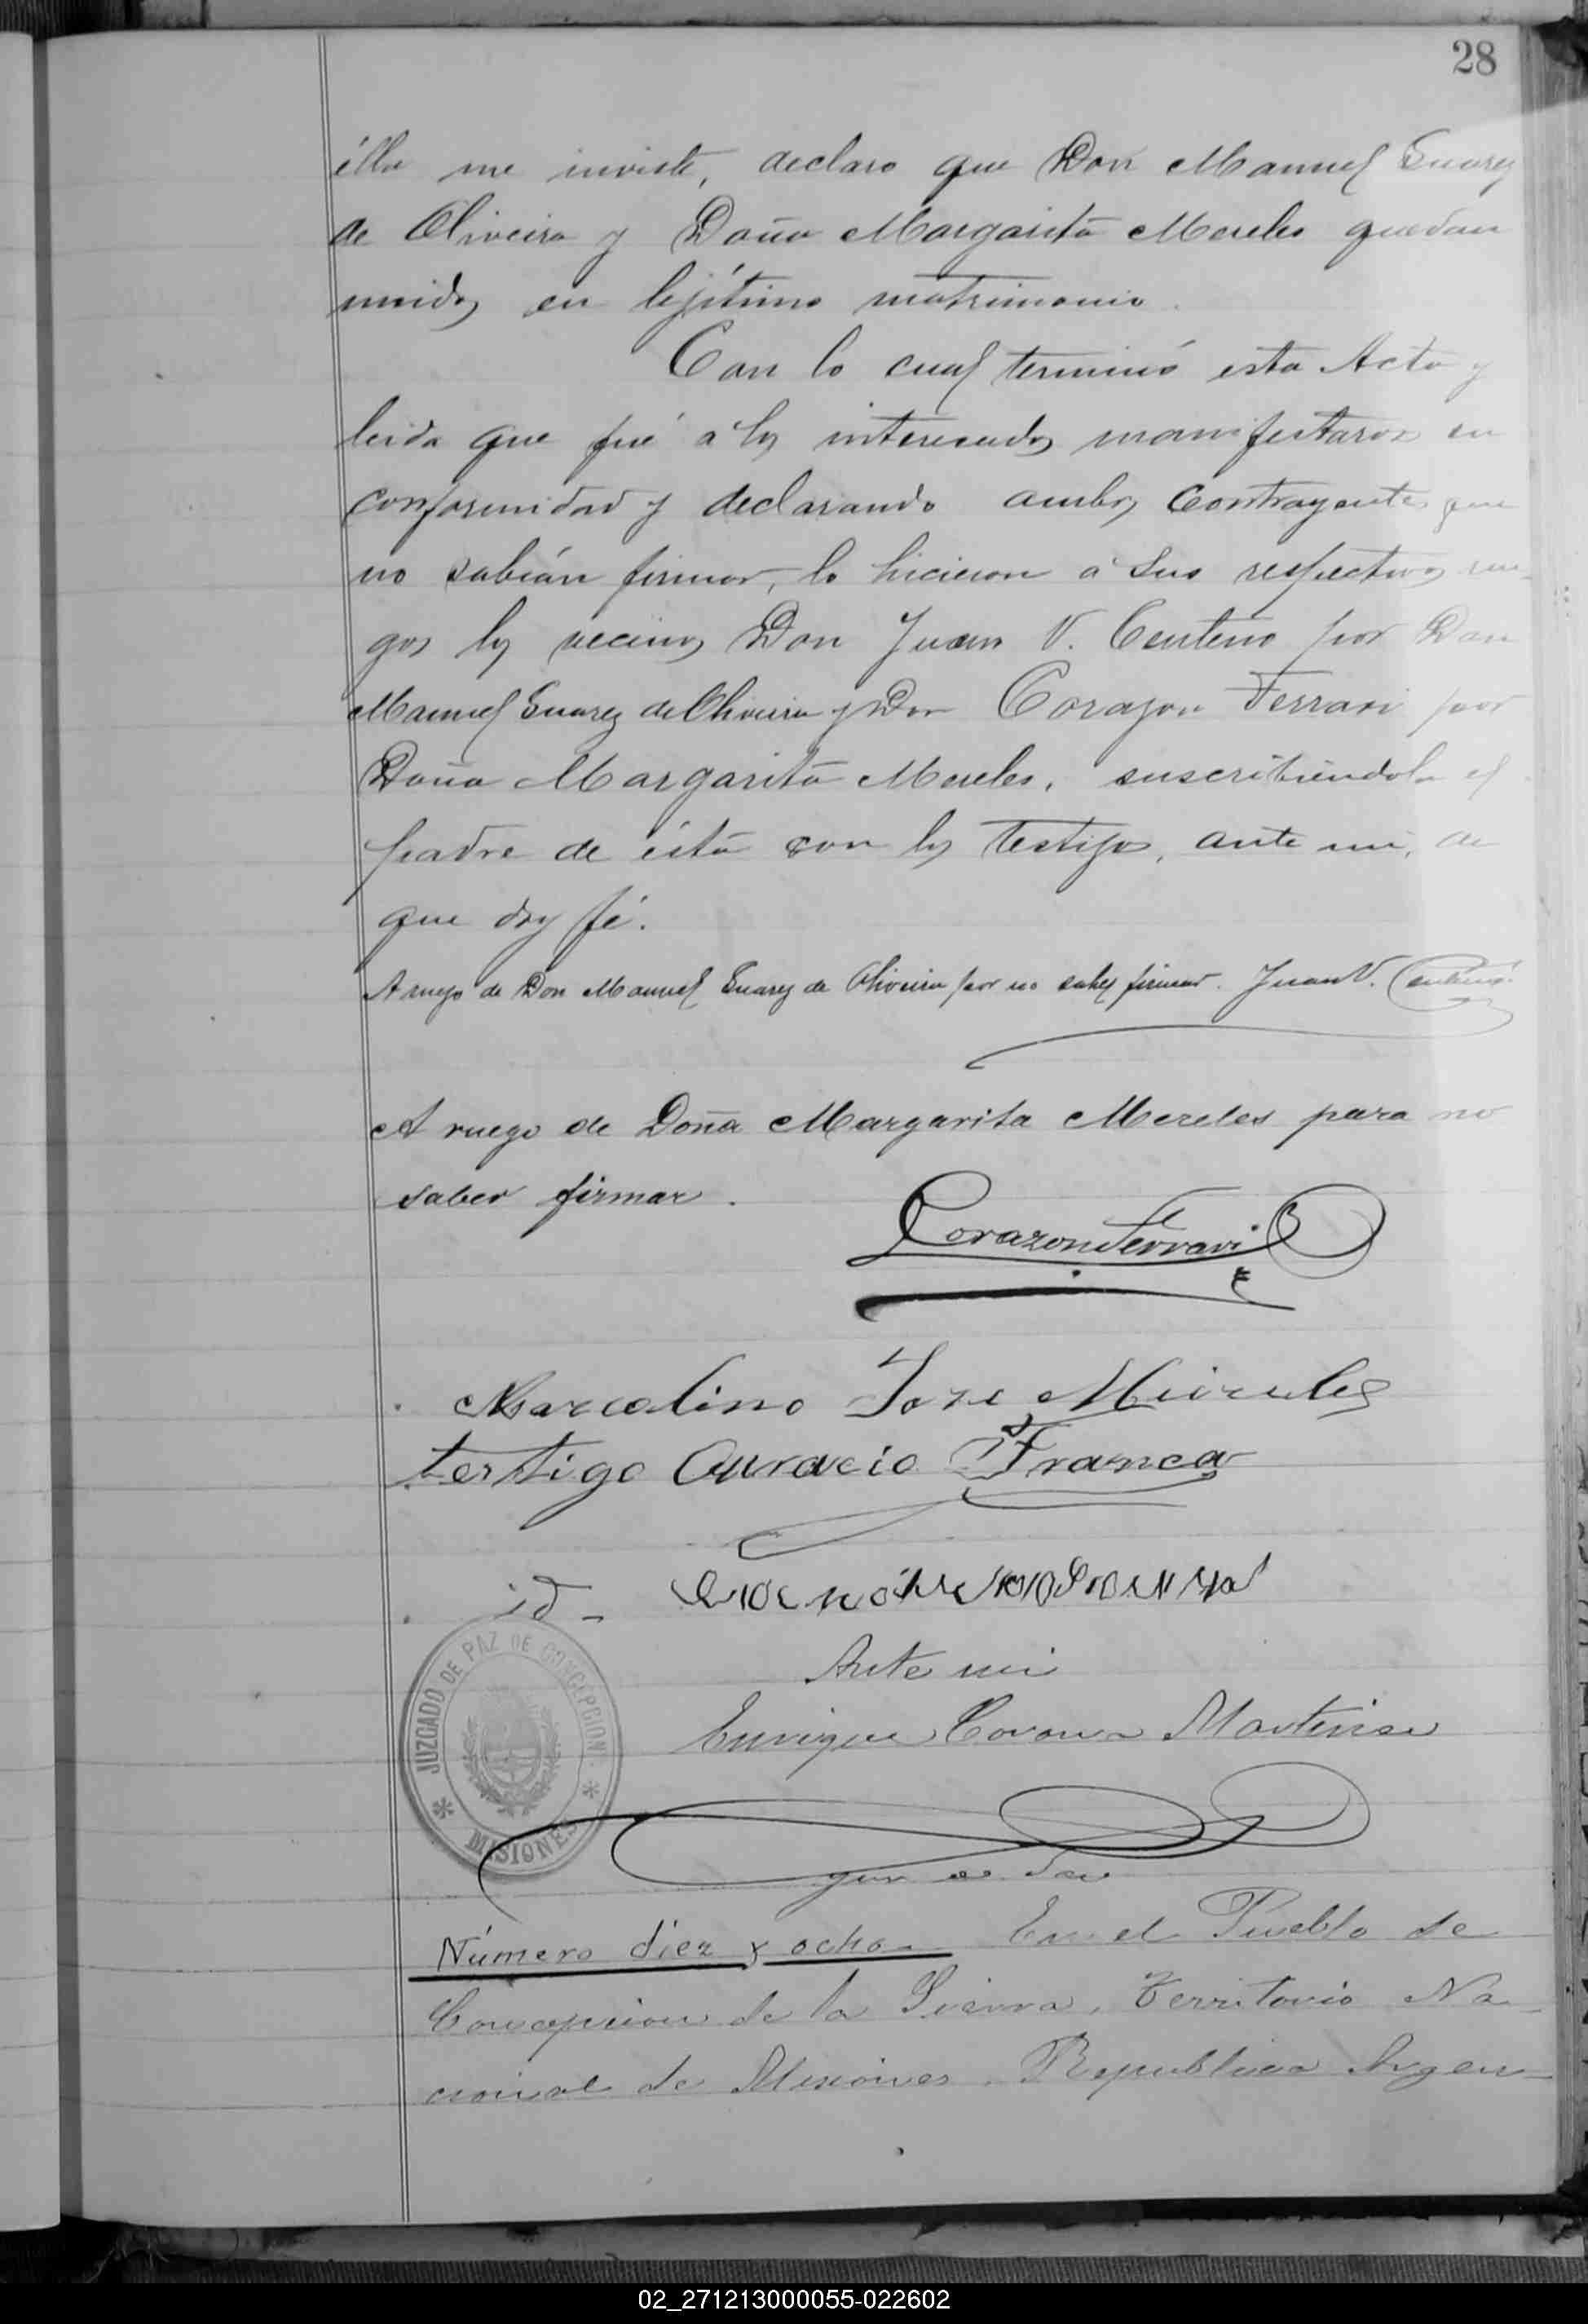 28
élla me inviste, declaro que Don Manuel Suarez
de Oliveira y Doña Margarita Mereles quedan
unidos en lejítimo matrimonio.
Con lo cual terminó esta Acta y
leida que fué a los interesados manifestaron su
conformidad y declarando ambos Contrayentes que
no sabían firmar, lo hicieron á sus respectivos rue-
gos los vecinos Don Juan V. Centeno por Don
Manuel Suarez de Oliveira y Don Corazon Ferrari por
Doña Margarita Mereles, suscribiéndola el
padre de ésta con los testigos, ante mi, de
que doy fé.
A ruego de Don Manuel Suarez de Oliveira por no saber firmar. Juan V. Centeno
A ruego de Doña Margarita Mereles para no
saber firmar.
Corazon Ferrari
Marcolino Joze Meireles
testigo Auracio Franca
id -
Ante mi
Enrique Corona Martinez
Juez de Paz
JUZGADO DE PAZ DE CONCEPCION
MISIONES
Número diez y ocho - En el Pueblo de
Concepcion de la Sierra, Territorio Na-
cional de Misiones, Republica Argen-
02_271213000055-022602